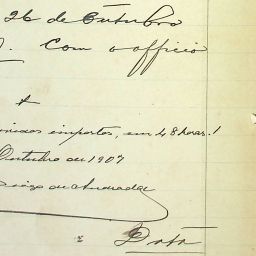 26 de Outubro
Com o officio
impostos, em 48 horas!
Outubro de 1907
de Andrade
Data